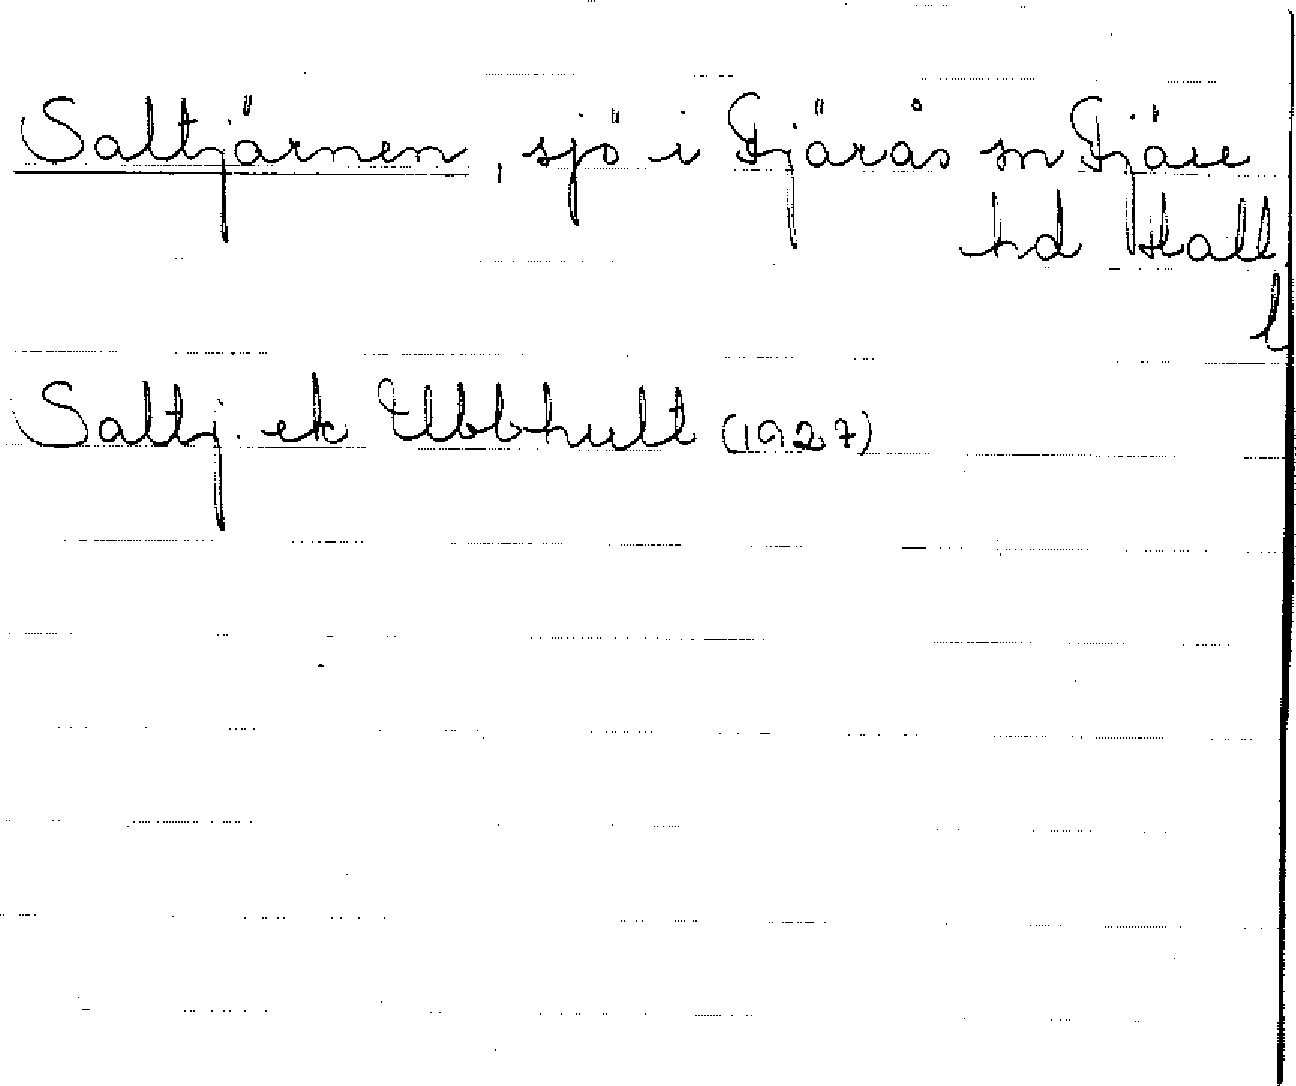 Saltjärnen, sjö i Fjärås sn Fjäre
hd Hall
l
Saltj. ek Ubbhult (1927)